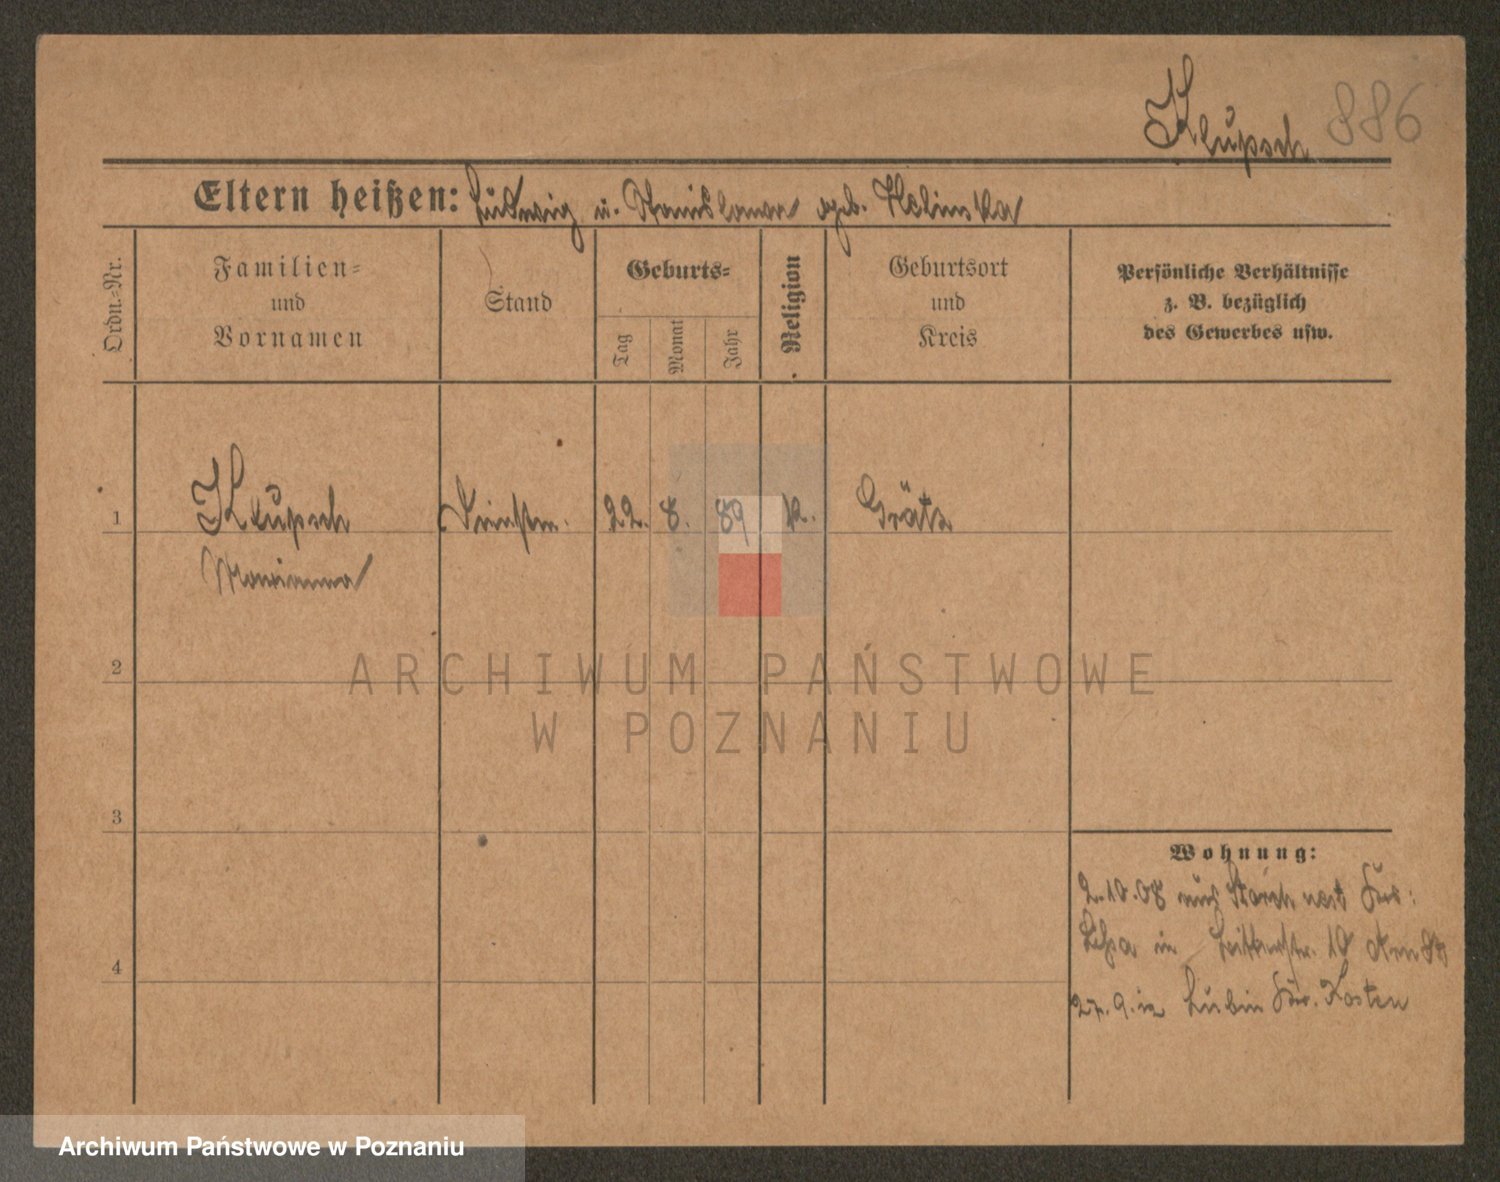 Klupsch 886
Eltern heißen: Ludwig u. Stanislawa geb.
Ordn.=Nr.
Familien=
und
Vornamen
Stand
Geburts=
Tag
Monat
Jahr
Religion
Geburtsort
und
Kreis
Persönliche Verhältnisse
z. B. bezüglich
des Gewerbes usw.
1 Klupsch 22. 8. 89 k. Grätz
Marianna
2
3
4
Wohnung:
2.10.08 aus
in 10
27.9. Lubin Kr. Kosten
ARCHIWUM PAŃSTWOWE
W POZNANIU
Archiwum Państwowe w Poznaniu